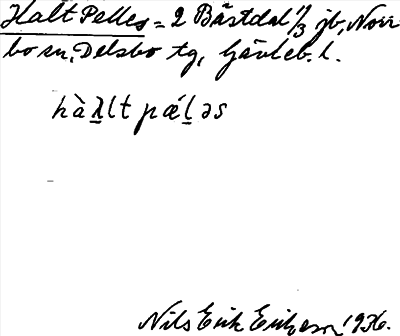 Halt Pelles = 2 Bästdal 1/3 jb, Norr
bo sn, Delsbo tg, Gävleb. l.
hàλ̱lt pǽḻəs
Nils Erik Eriksson 1936.